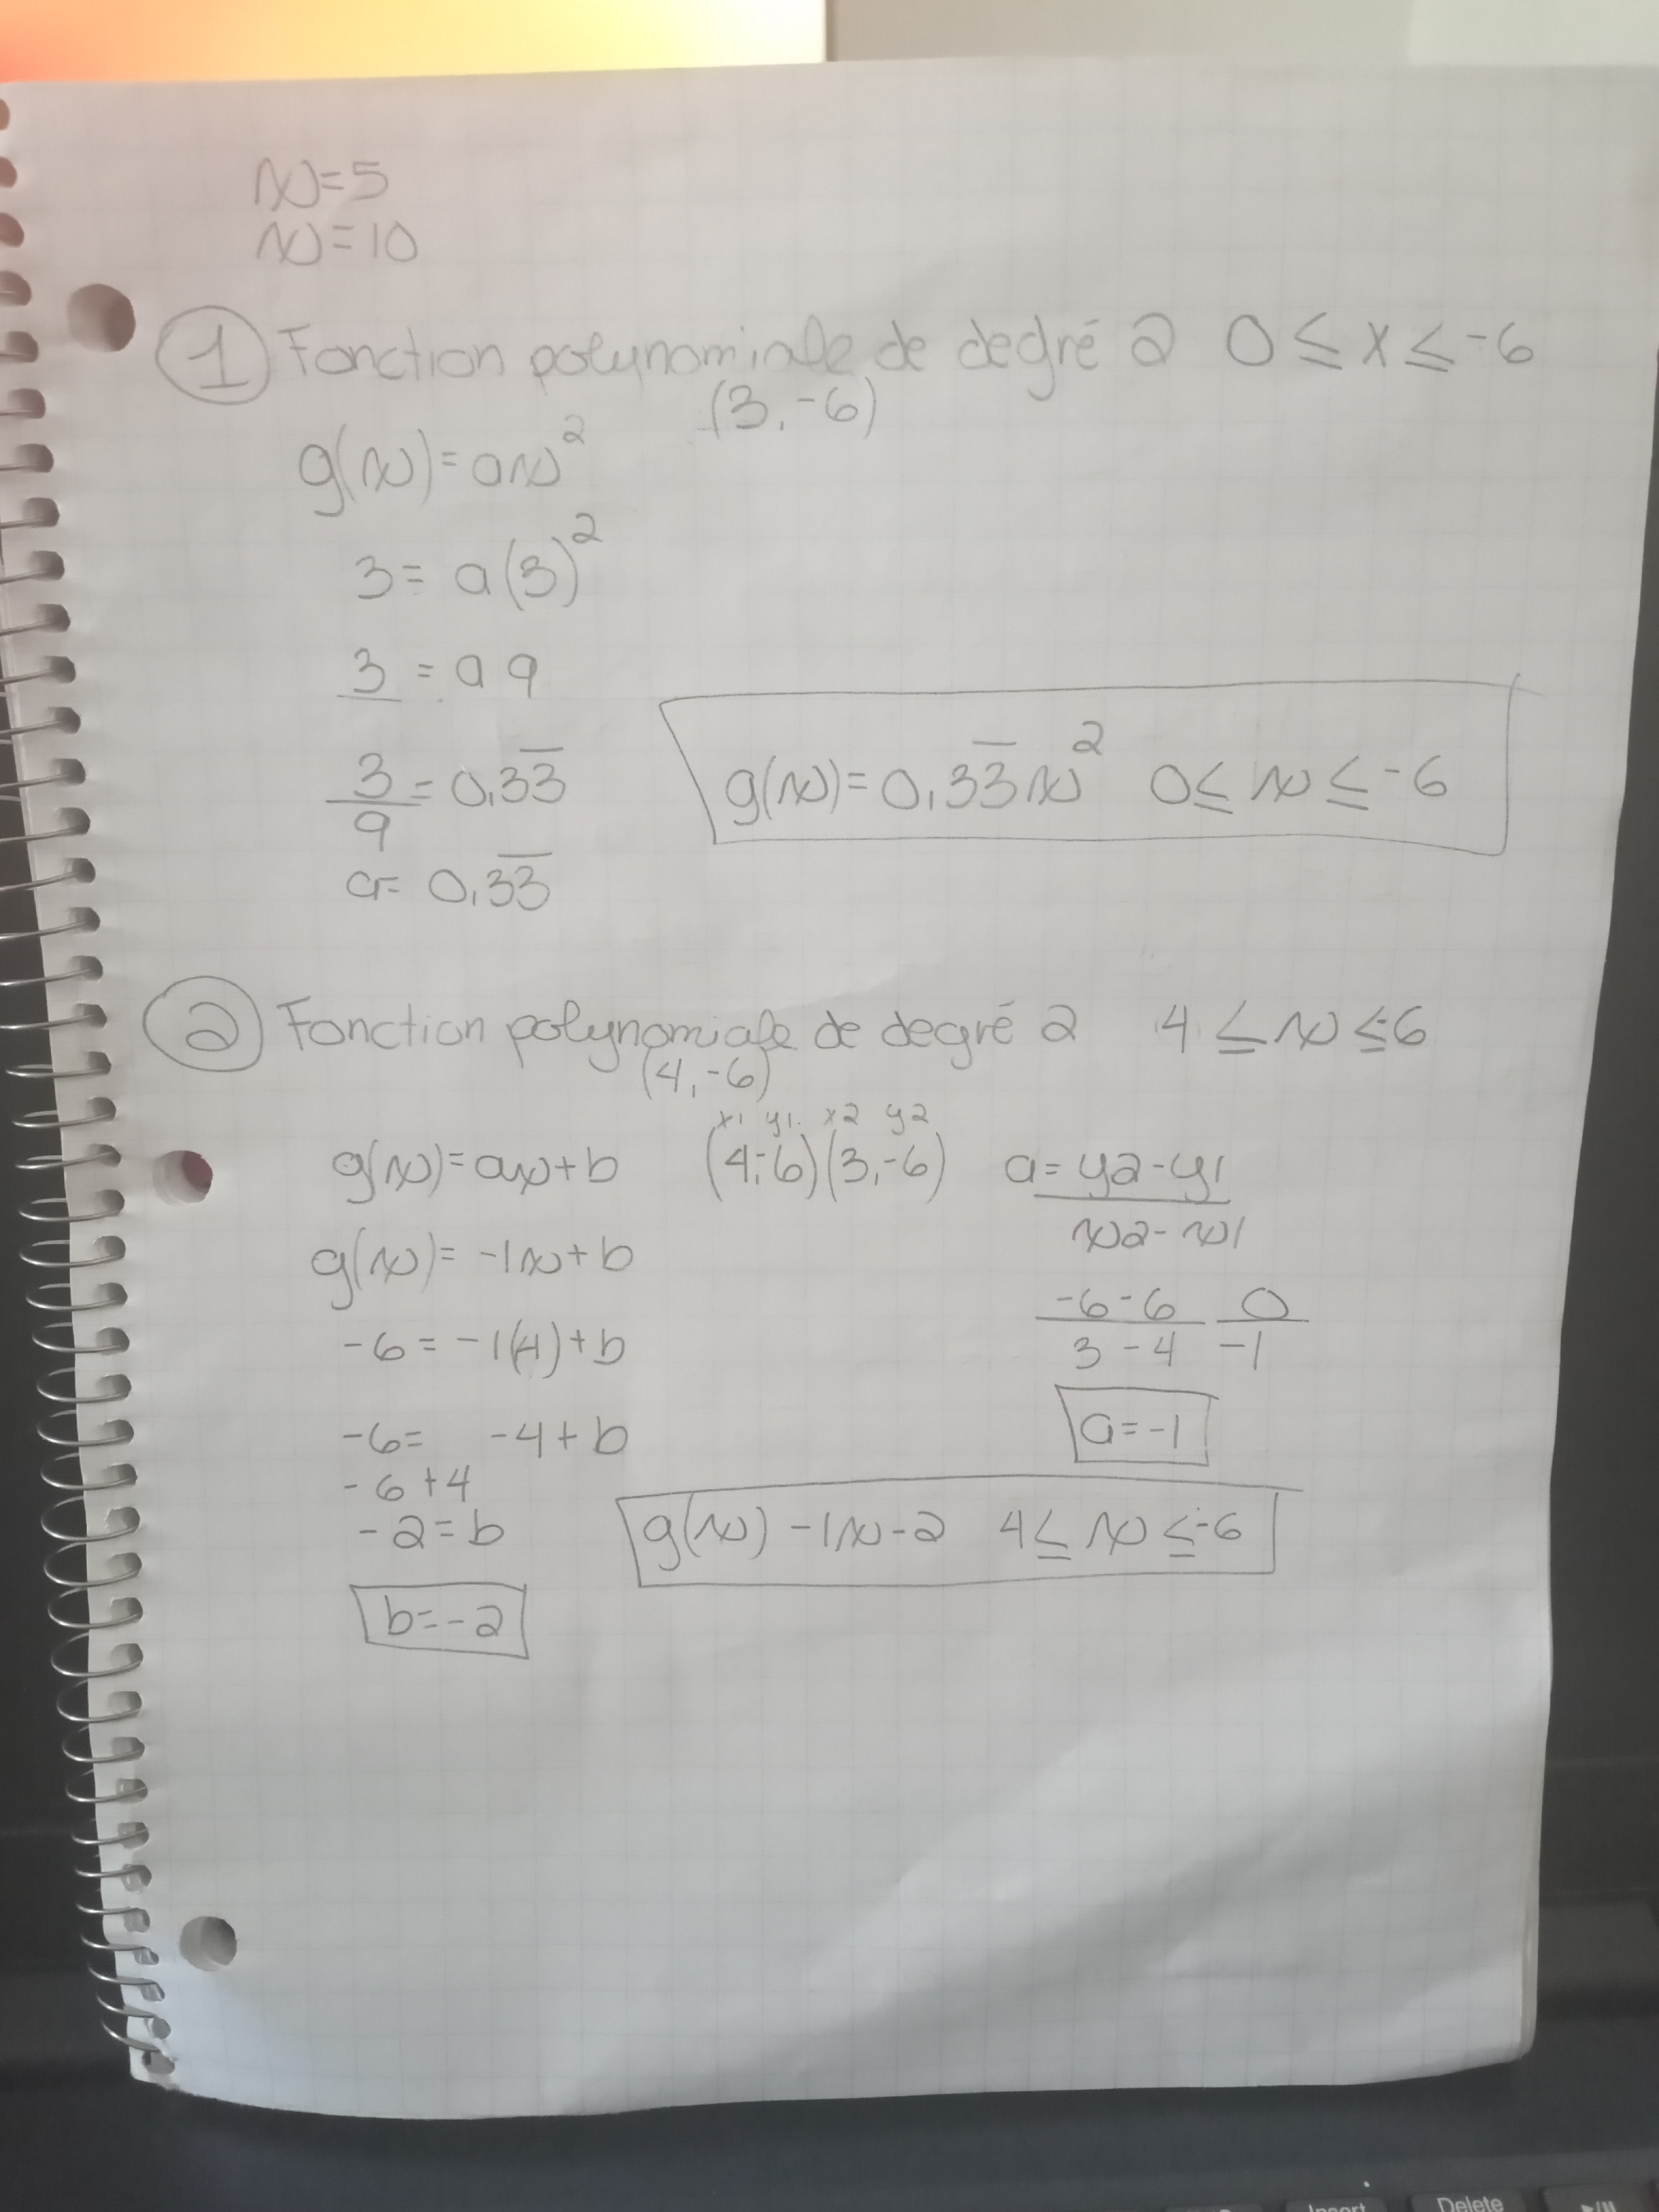 x=5
x=10
1 Fonction polynomiale de degré 2 0 ≤ x ≤ -6
(3, -6)
g(x)=ax²
3= a(3)²
3 = a9
3/9 = 0,33̅
a= 0,33̅
g(x)=0,33̅x² 0≤ x ≤ -6
2 Fonction polynomiale de degré 2 4 ≤ x ≤-6
(4, -6)
x1 y1. x2 y2
g(x)=ax+b (4,-6)(3,-6) a= y2-y1/x2-x1
g(x)= -1x+b
-6-6/3-4 0/-1
-6= -1(4)+b
a=-1
-6= -4+b
-6+4
-2=b
g(x) -1x-2 4≤ x ≤-6
b=-2
Insert
Delete